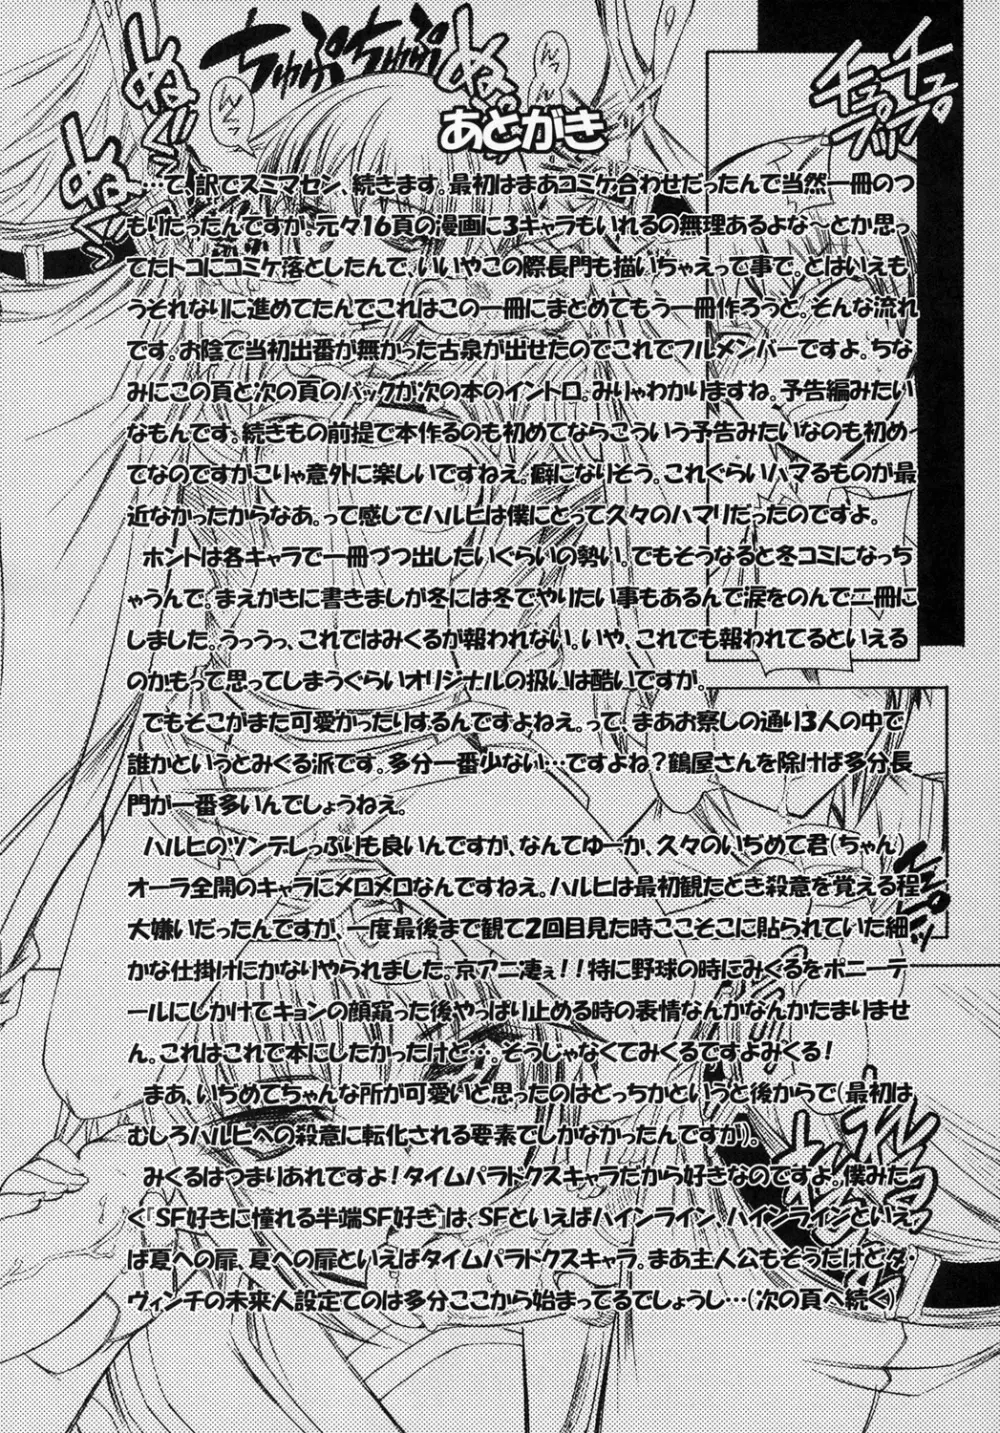 あとがき
…て、訳でスミマセン、続きます。最初はまあコミケ合わせだったんで当然一冊のつ
もりだったんですが、元々16頁の漫画に3キャラもいれるの無理あるよな～とか思っ
てたトコにコミケ落としたんで、いいやこの際長門も描いちゃえって事で。とはいえも
うそれなりに進めてたんでこれはこの一冊にまとめてもう一冊作ろうと。そんな流れ
です。お陰で当初出番が無かった古泉が出せたのでこれでフルメンバーですよ。ちな
みにこの頁と次の頁のバックが次の本のイントロ。みりゃわかりますね。予告編みたい
なもんです。続きもの前提で本作るのも初めてならこういう予告みたいなのも初め
てなのですがこりゃ意外に楽しいですねえ。癖になりそう。これぐらいハマるものが最
近なかったからなあ。って感じでハルヒは僕にとって久々のハマリだったのですよ。
ホントは各キャラで一冊づつ出したいぐらいの勢い。でもそうなると冬コミになっち
ゃうんで。まえがきに書きましが冬には冬でやりたい事もあるんで涙をのんで二冊に
しました。うっうっ、これではみくるが報われない。いや、これでも報われてるといえる
のかもって思ってしまうぐらいオリジナルの扱いは酷いですが。
でもそこがまた可愛かったりするんですよねえ。って、まあお察しの通り3人の中で
誰かというとみくる派です。多分一番少ない…ですよね？鶴屋さんを除けば多分長
門が一番多いんでしょうねえ。
ハルヒのツンテレっぷりも良いんですが、なんてゆーか、久々のいぢめて君(ちゃん)
オーラ全開のキャラにメロメロなんですねえ。ハルヒは最初観たとき殺意を覚える程
大嫌いだったんですが、一度最後まで観て2回目見た時ここそこに貼られていた細
かな仕掛けにかなりやられました。京アニ凄ぇ！！特に野球の時にみくるをポニーテ
ールにしかけてキョンの顔窺った後やっぱり止める時の表情なんかなんかたまりませ
ん。これはこれで本にしたかったけど…。そうじゃなくてみくるですよみくる！
まあ、いぢめてちゃんな所が可愛いと思ったのはどっちかというと後からで(最初は
むしろハルヒへの殺意に転化される要素でしかなかったんですが)。
みくるはつまりあれですよ！タイムパラドクスキャラだから好きなのですよ。僕みた
く『SF好きに憧れる半端SF好き』は、SFといえばハインライン、ハインラインといえ
ば夏への扉、夏への扉といえばタイムパラドクスキャラ。まあ主人公もそうだけどダ・
ヴィンチの未来人設定てのは多分ここから始まってるでしょうし…(次の頁へ続く)
ちゅぷちゅぷ
チュプ
チュプ